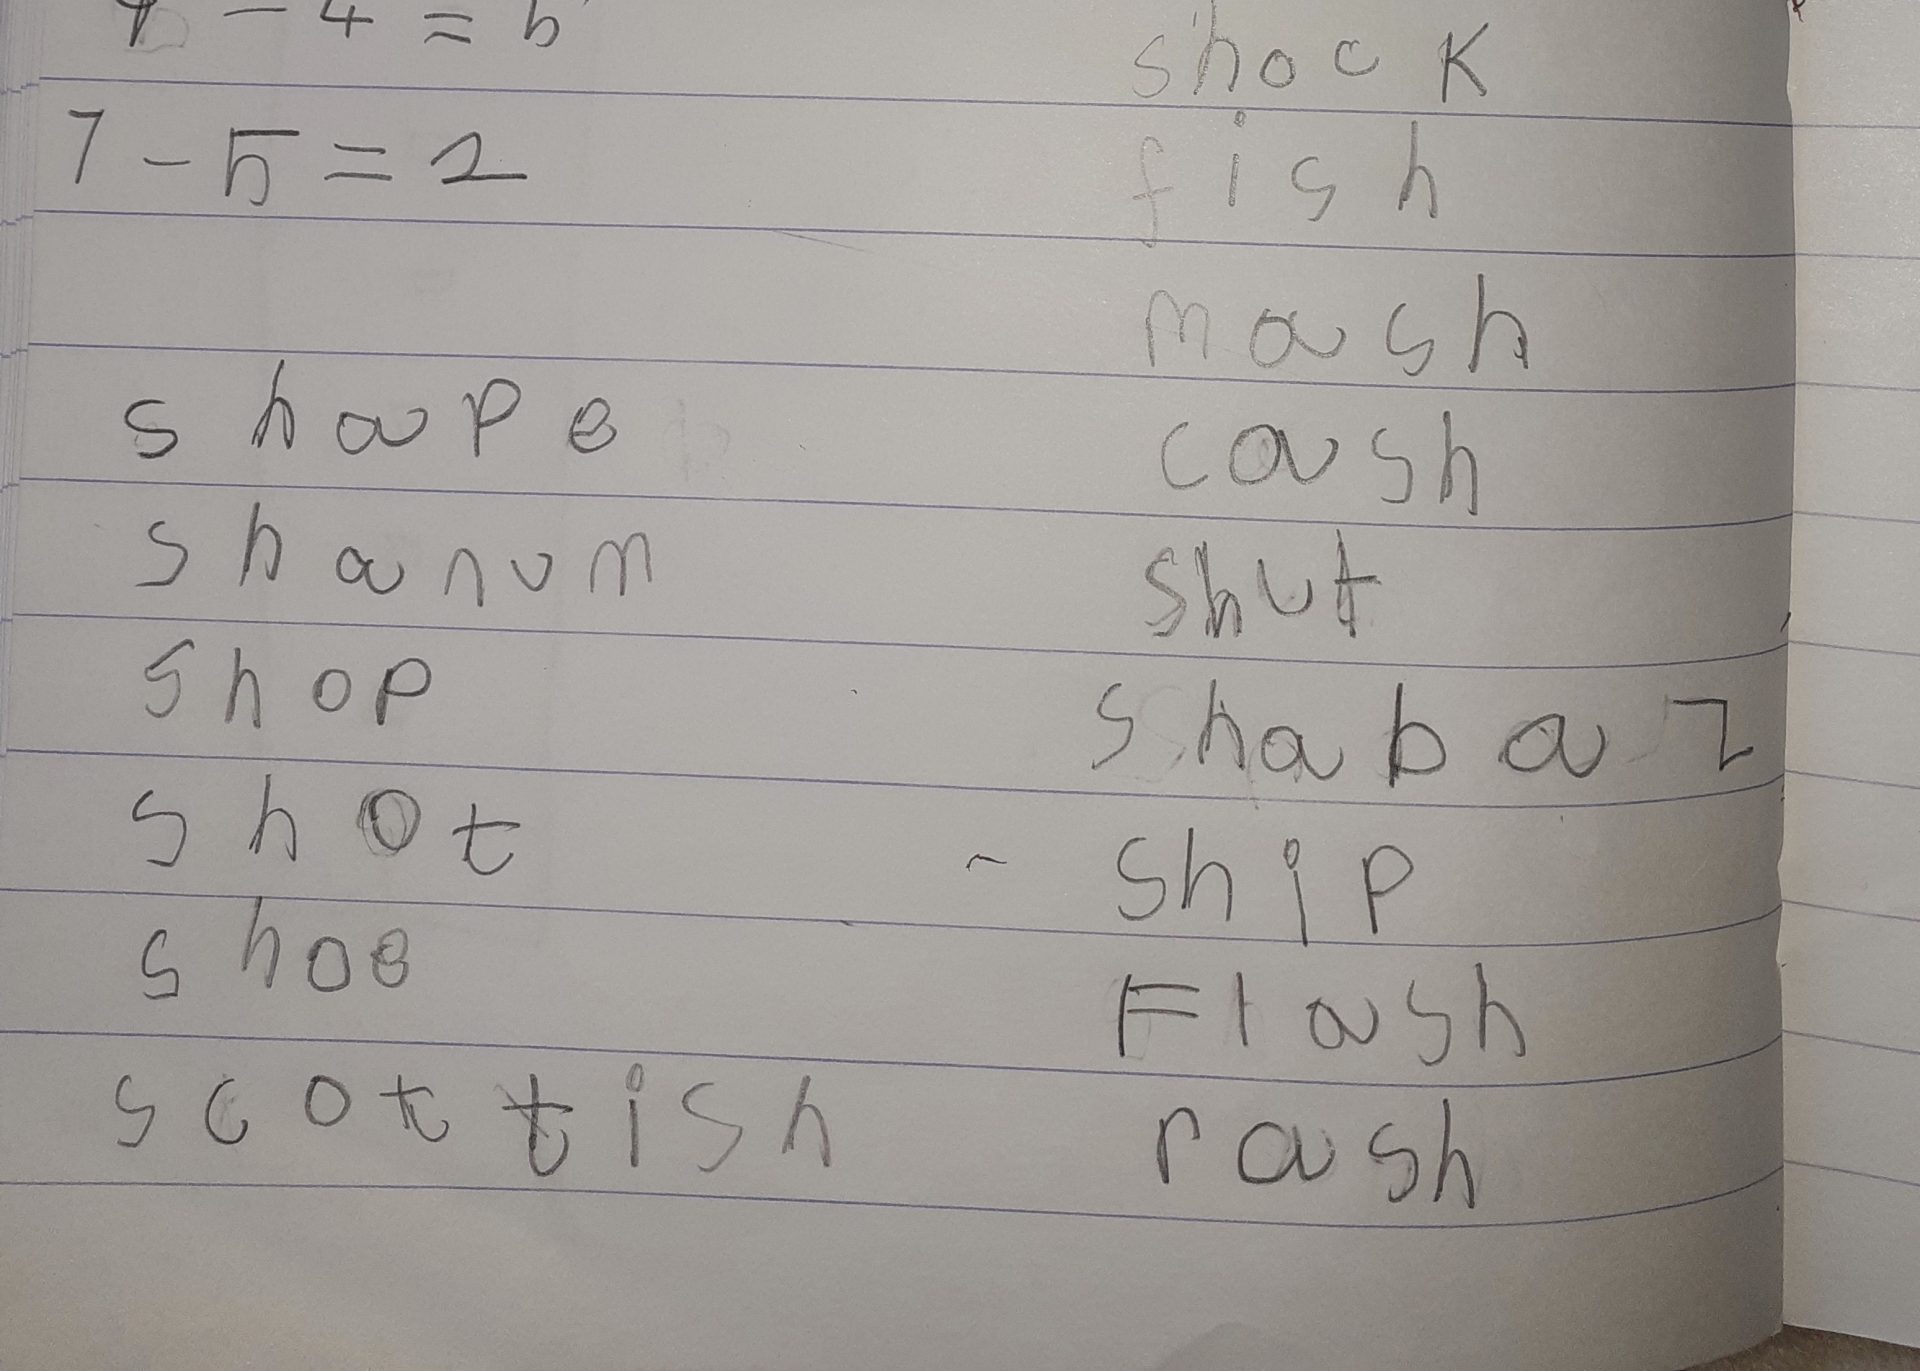 - 4 = 5
7 - 5 = 2
shape
shanum
shop
shot
shoe
scottish
shock
fish
mash
cash
shut
shabaz
ship
Flash
rash